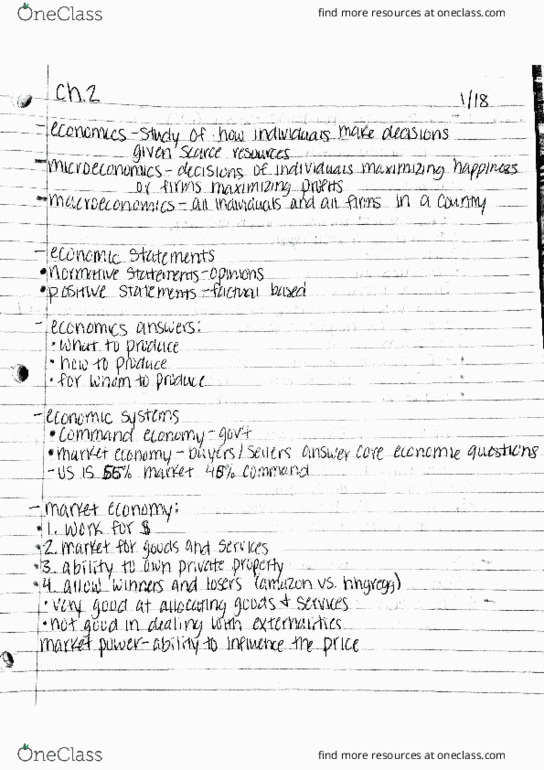 OneClass
find more resources at oneclass.com
Ch.2
1/18
- economics - study of how individuals make decisions
given scarce resources
- microeconomics - decisions of individuals maximizing happiness
or firms maximizing profits
- macroeconomics - all individuals and all firms in a country
- economic statements
• normative statements - opinions
• positive statements - factual based
- economics answers:
• what to produce
• how to produce
• for whom to produce
- economic systems
• command economy - gov't
• market economy - buyers/sellers answer core economic questions
- US is 55% market 45% command
- market economy:
• 1. work for $
• 2. market for goods and services
• 3. ability to own private property
• 4. allow winners and losers (amazon vs. hhgregg)
• very good at allocating goods & services
• not good in dealing with externalities
market power - ability to influence the price
OneClass
find more resources at oneclass.com